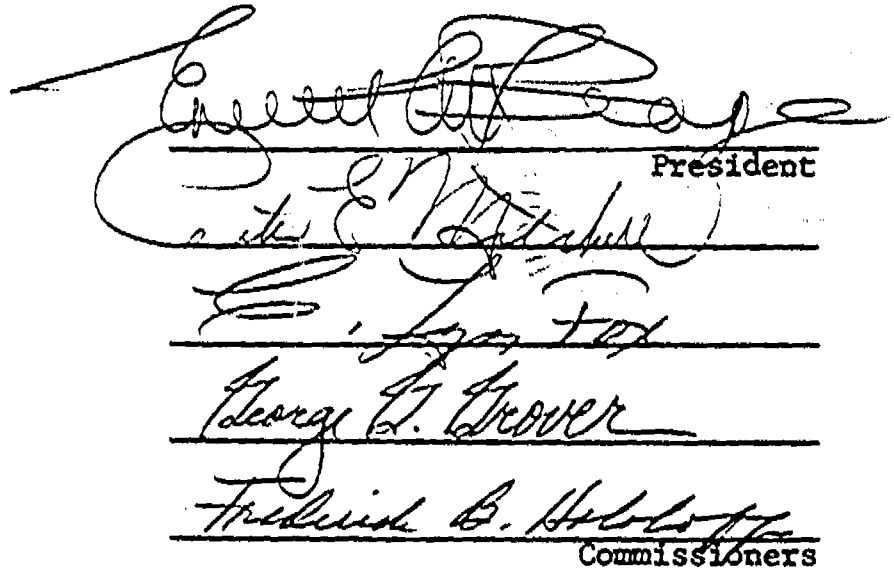 Everett C. McKeage
President
E. Mitchell
E. Lyn Fox
George G. Grover
Frederick B. Holoboff
Commissioners